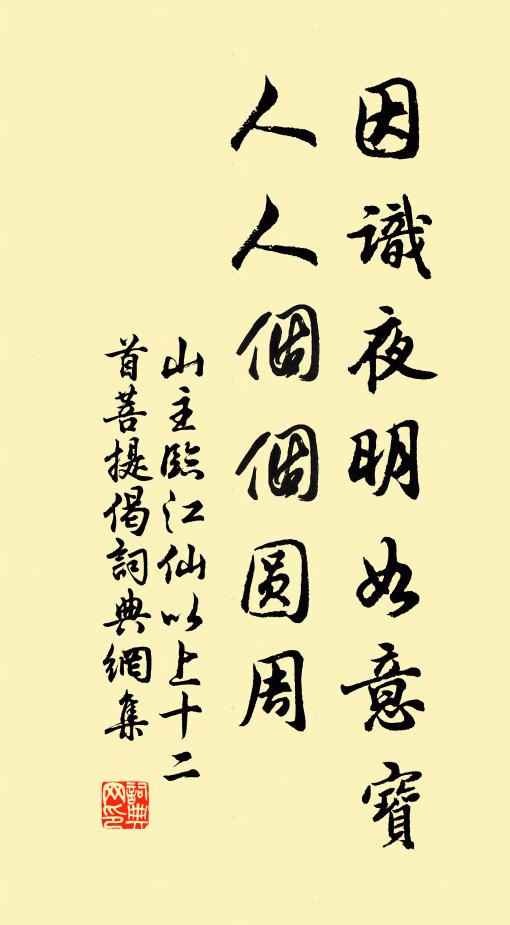 因識夜明如意寶
人人個個圓周
山主臨江仙以上十二
首菩提偈詞典網集
詞典
网印